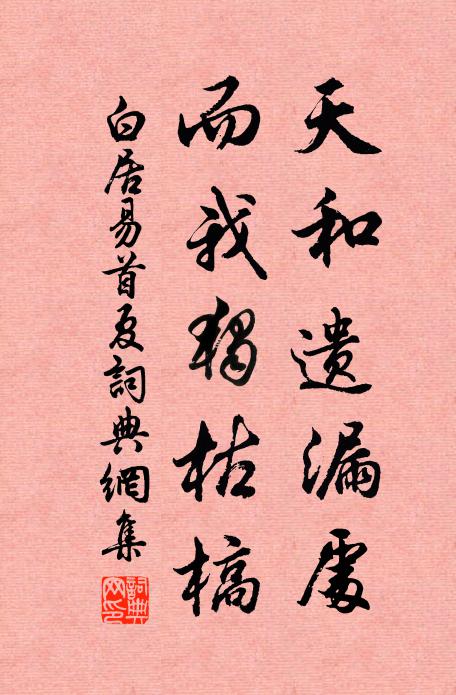 天和遺漏處
而我獨枯槁
白居易首夏詞典網集
詞典网印